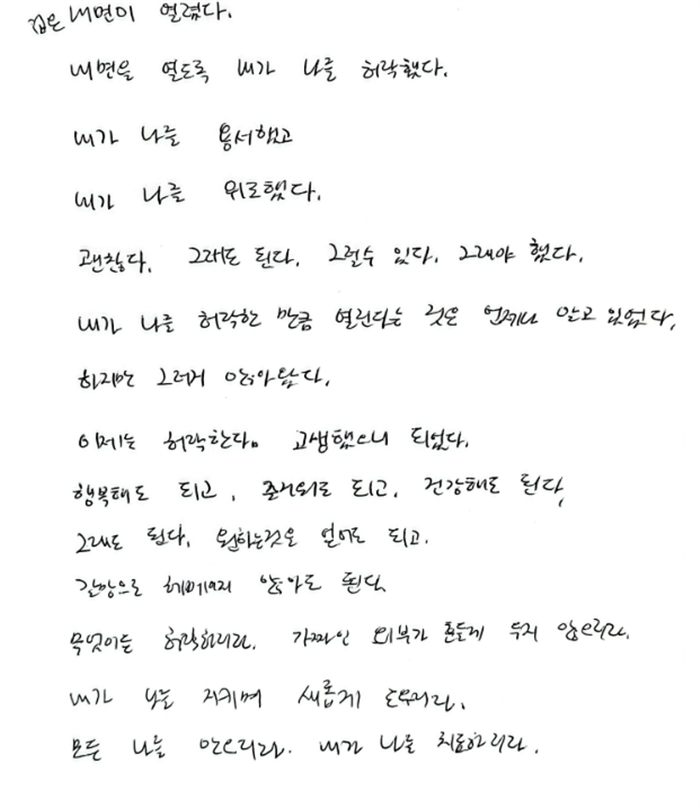 깊은 내면이 열렸다.
내면을 열도록 내가 나를 허락했다.
내가 나를 용서했고
내가 나를 위로했다.
괜찮다. 그래도 된다. 그럴수 있다. 그래야 했다.
내가 나를 허락한 만큼 열린다는 것은 언제나 알고 있었다.
하지만 그러지 않아왔다.
이제는 허락한다. 고생했으니 되었다.
행복해도 되고, 즐거워도 되고, 건강해도 된다,
그래도 된다. 원하는것은 얻어도 되고.
갈망으로 헤메이지 않아도 된다.
무엇이든 허락하리라. 가짜인 외부가 흔들게 두지 않으리라.
내가 나를 지키며 새롭게 도우리라.
모든 나를 안으리라. 내가 나를 치료하리라.